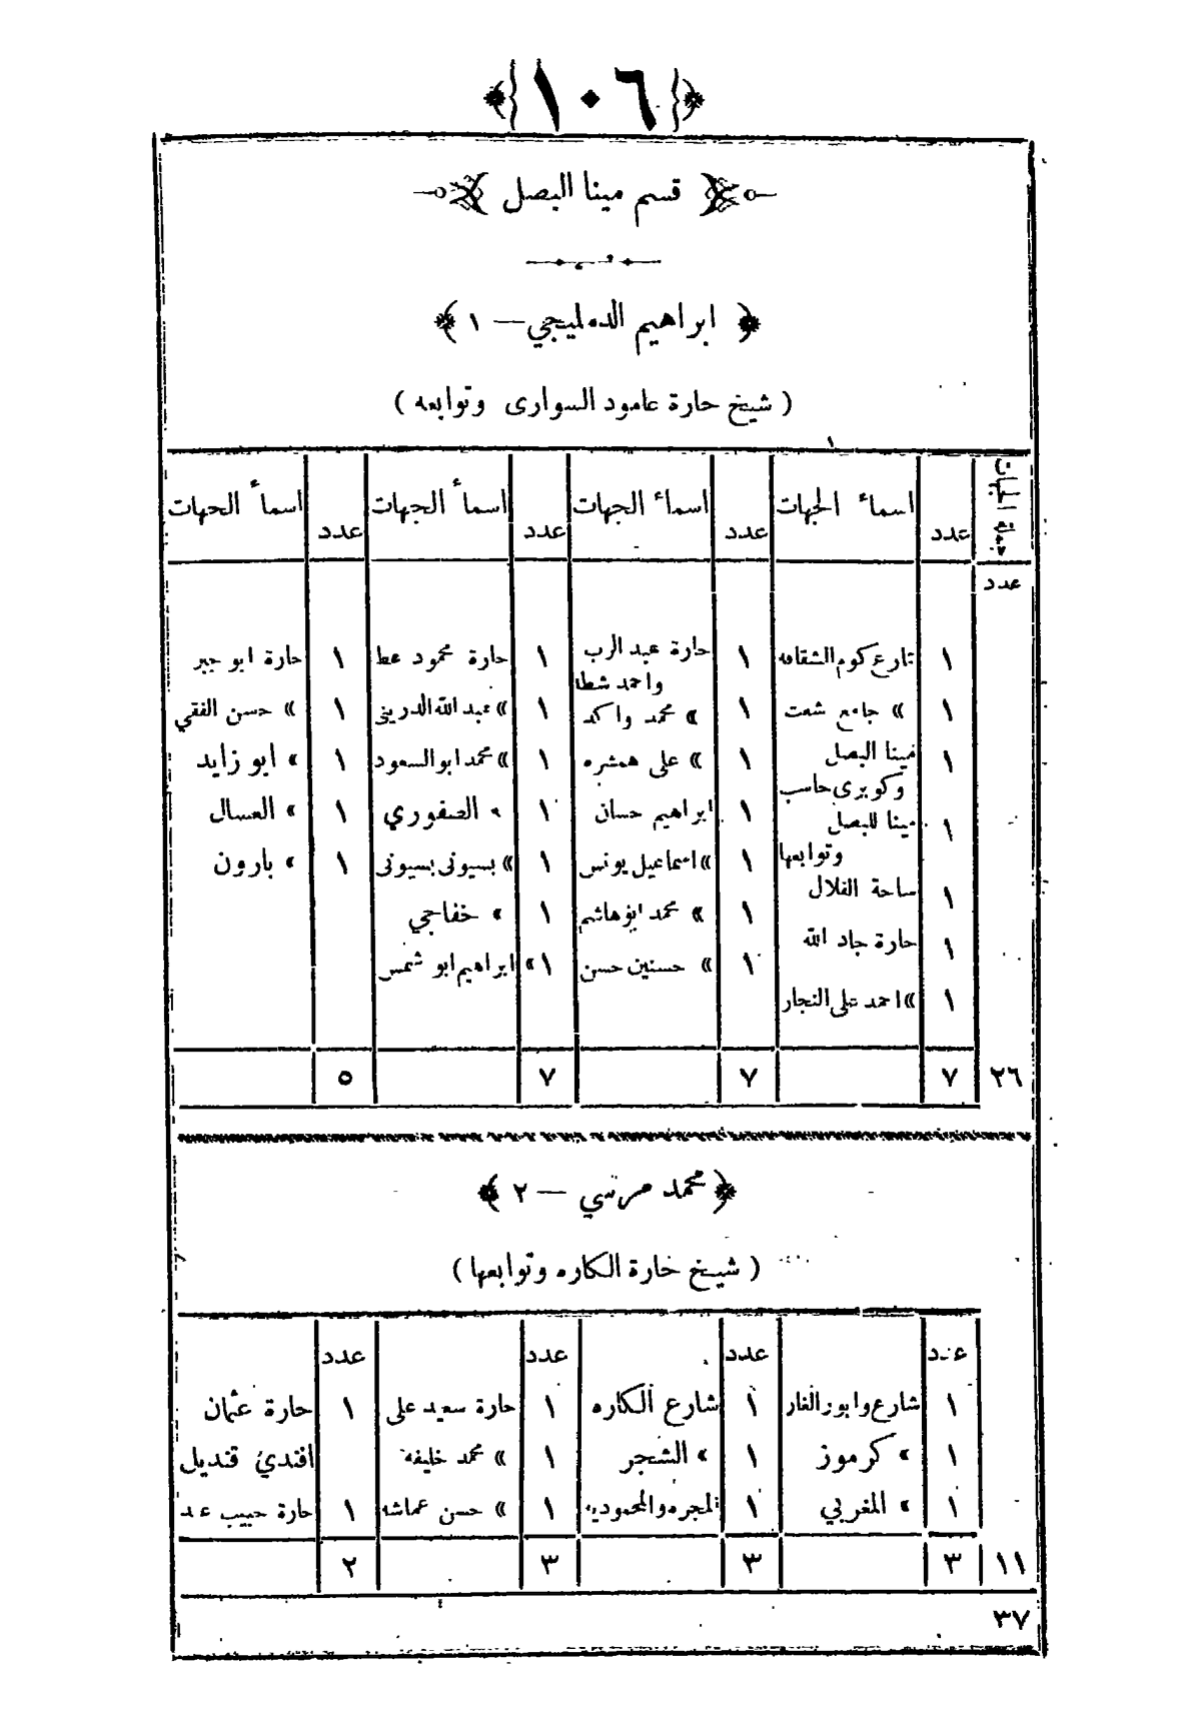 ﴿١٠٦﴾
قسم مينا البصل
﴿ ابراهيم الدمليجي — ١ ﴾
( شيخ حارة عامود السوارى وتوابعه )
جملة الجهات | عدد | اسماء الجهات | عدد | اسماء الجهات | عدد | اسمأ الجهات | عدد | اسمأ الجهات
عدد
١ | شارع كوم الشقافه | ١ | حارة عبد الرب واحمد شطا | ١ | حارة محمود عط | ١ | حارة ابو جبر
١ | » جامع شعت | ١ | » محمد واكد | ١ | » عبد الله الدرينى | ١ | » حسن الفقي
١ | مينا البصل وكوبرى حاسب | ١ | » على همشره | ١ | » محمد ابو السعود | ١ | » ابو زايد
١ | مينا للبصل وتوابعها | ١ | ابراهيم حسان | ١ | » الصفوري | ١ | » العسال
١ | ساحة الغلال | ١ | » اسماعيل يونس | ١ | » بسيونى بسيونى | ١ | » بارون
١ | حارة جاد الله | ١ | » محمد ابو هاشم | ١ | » خفاجي
١ | » احمد على النجار | ١ | » حسنين حسن | ١ | » ابراهيم ابو شمس
٢٦ | ٧ | ٧ | ٧ | ٥
﴿ محمد مرسي — ٢ ﴾
( شيخ حارة الكاره وتوابعها )
عدد | عدد | عدد | عدد
١ | شارع وابور الغاز | ١ | شارع الكاره | ١ | حارة سعيد على | ١ | حارة عثمان
١ | » كرموز | ١ | » الشجر | ١ | » محمد خليفه | افندي قنديل
١ | » المغربي | ١ | المجره والمحموديه | ١ | » حسن عماشه | ١ | حارة حبيب عد
١١ | ٣ | ٣ | ٣ | ٢
٣٧